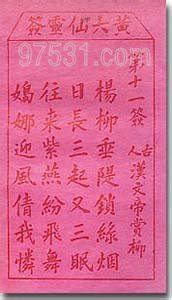 黃大仙靈簽
97531.com
第十一簽
古人 漢文帝賞柳
楊柳垂隄鎖綠烟
日長三起又三眠
往來紫燕紛飛舞
嫋娜迎風倩我憐